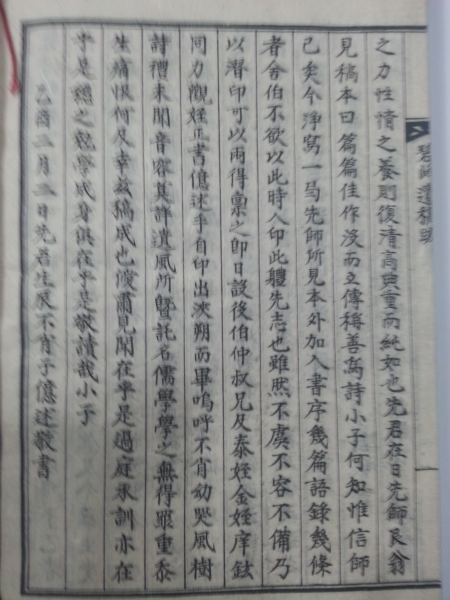 之力性情之養則復清高典重而純如也先君在日先師艮翁
見稿本曰篇篇佳作沒而立傳稱善為詩小子何知惟信師
已矣今淨寫一局先師所見本外加入書序幾篇語錄幾條
者舍伯不欲以此時入印此體先志也雖然不虞不容不備乃
以潛印可以兩得稟之即日設後伯仲叔兄及泰姪金姪庠鉉
同力觀姪正書億述手自印出浹朔而畢嗚呼不肖幼哭風樹
詩禮未聞音容莫詳遺風所曁託名儒學學之無得跟重忝
生痛恨何及幸玆稿成也愾肅見聞在乎是過庭承訓亦在
乎是總之勉學成身俱在乎是敬讀哉小子
乙酉二月二日先君生辰不肖子億述敬書
遺稿